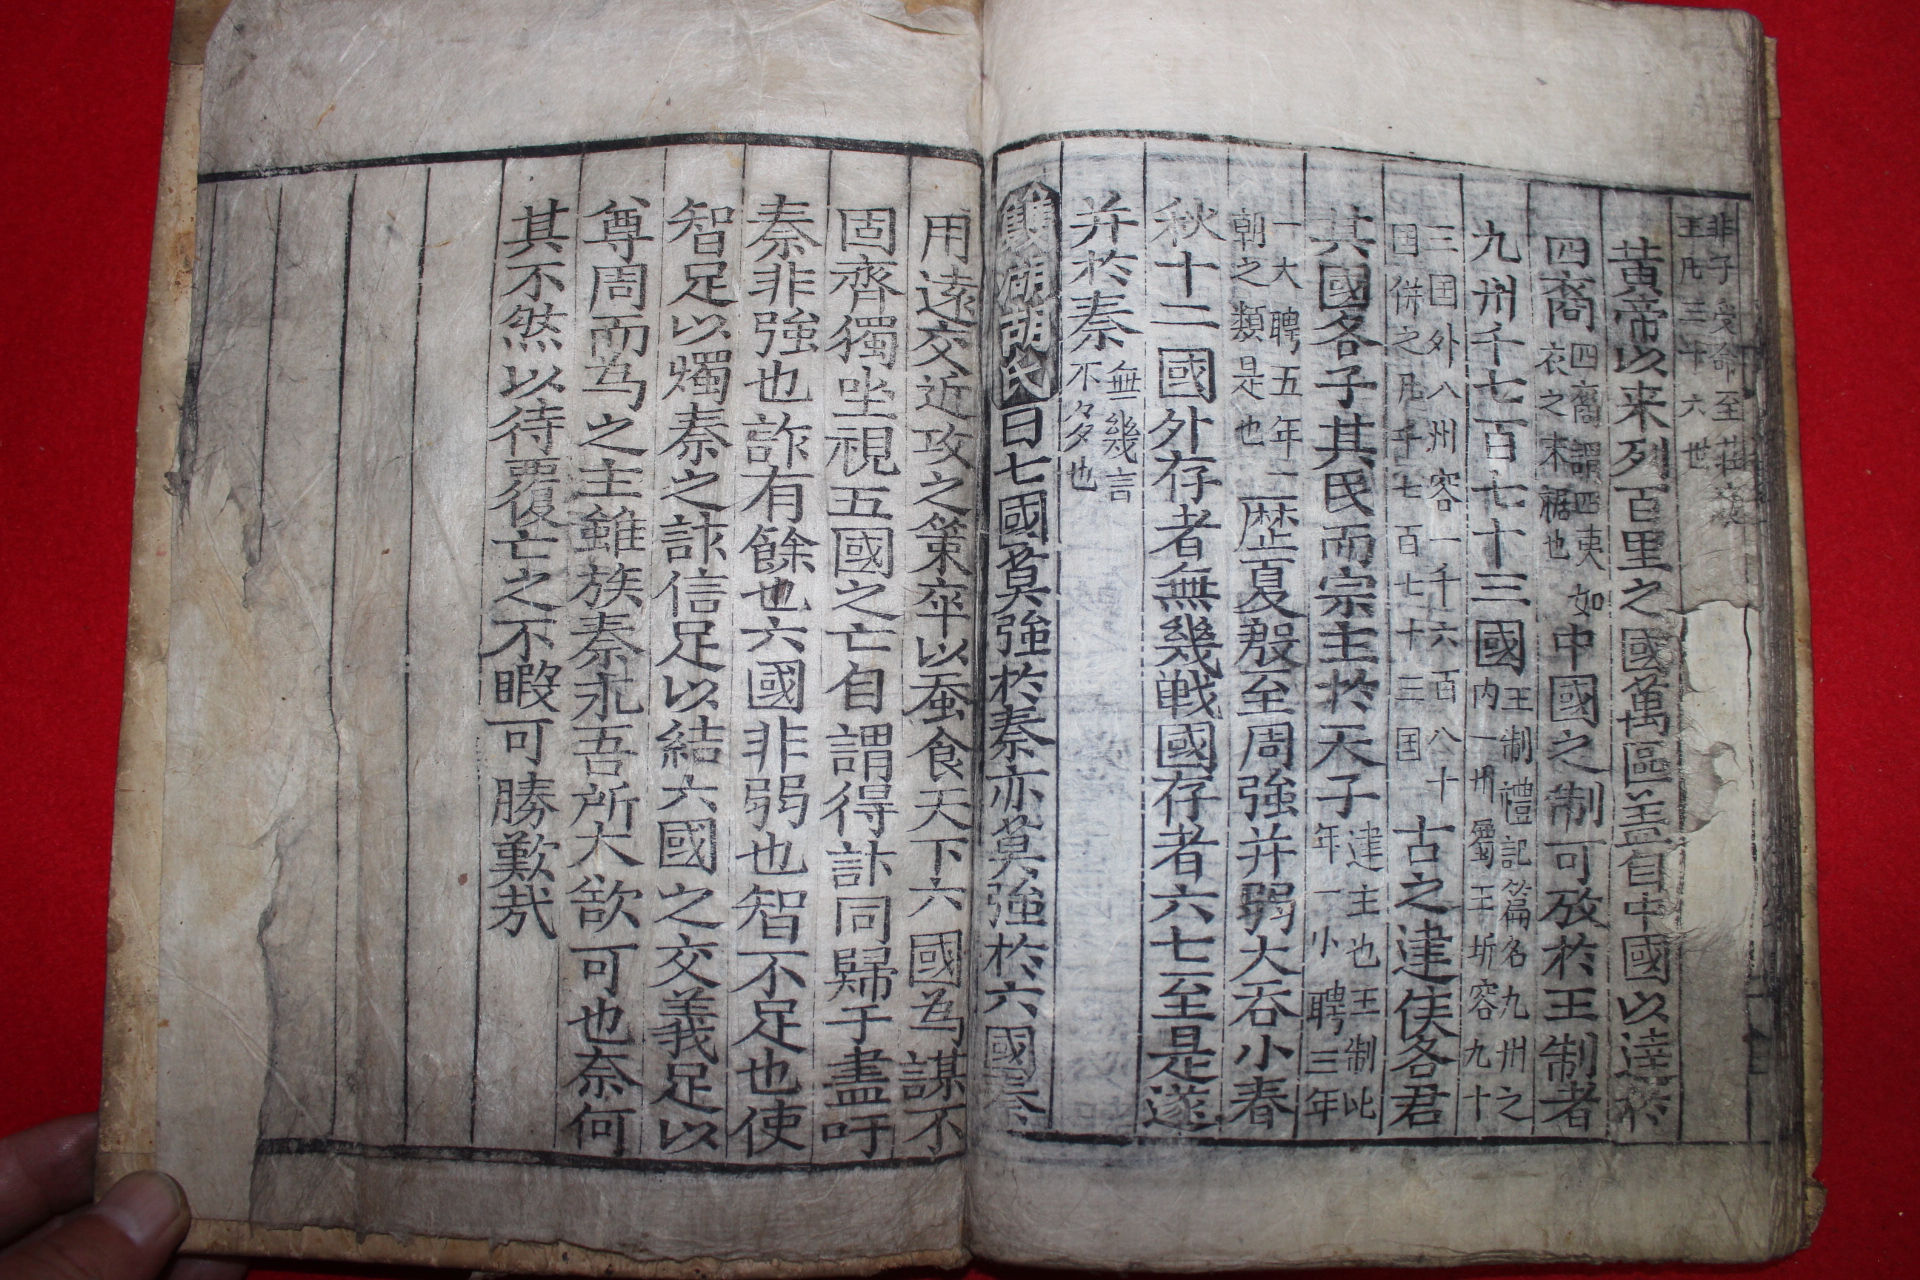 非子受命至
王凡三十六世
黄帝以来列百里之國萬區盖自中國以達於
四裔
四裔謂四夷
衣之末裾也
如中國之制可攷於王制者
九州千七百七十三國
王制禮記篇名九州之
内一州屬王圻容九十
三囯外八州容一千六百八十
囯併之凡千七百七十三囯
古之建侯各君
其國各子其民而宗主於天子
建主也王制比
年一小聘三年
一大聘五年一
朝之類是也
歴夏殷至周強并弱大吞小春
秋十二國外存者無幾戦國存者六七至是遂
并於秦
無幾言
不多也
雙湖胡氏曰七國莫強於秦亦莫強於六國秦
用遠交近攻之策卒以蚕食天下六國為謀不
固齊獨坐視五國之亡自謂得計同歸于盡吁
秦非強也詐有餘也六國非弱也智不足也使
智足以燭秦之詐信足以結六國之交義足以
尊周而為之主雖族秦氶吾所大欲可也奈何
其不然以待覆亡之不暇可勝歎哉